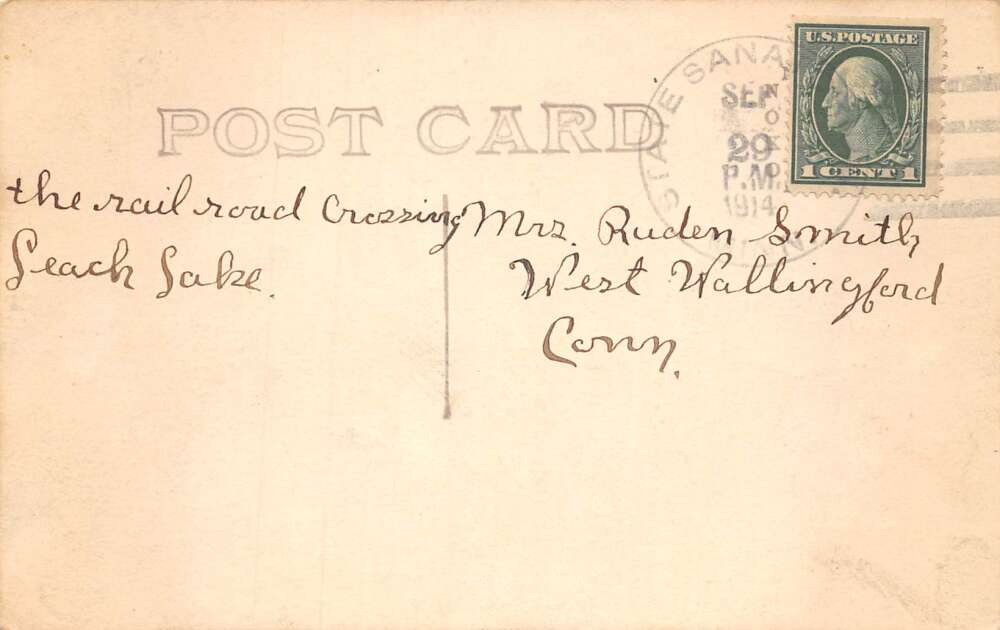 POST CARD
STATE SANA
SEP
29
P.M.
1914
U.S. POSTAGE
1 CENT 1
the rail road Crossing
Leach Lake.
Mrs. Ruden Smith
West Wallingford
Conn.